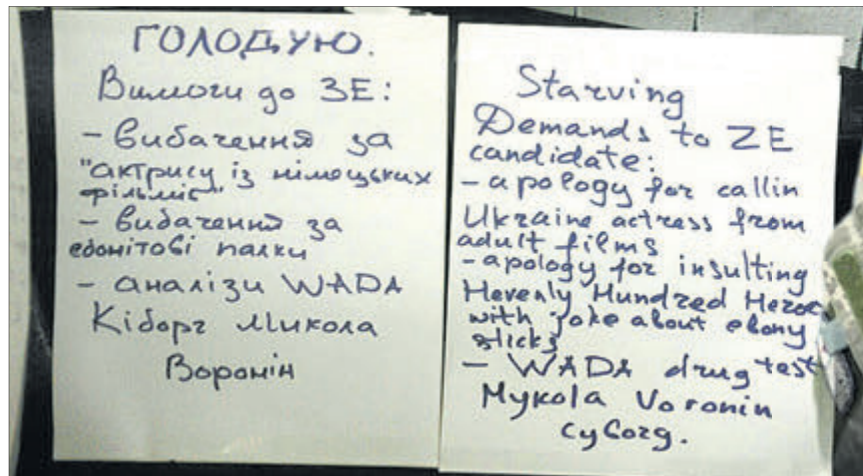 ГОЛОДУЮ.
Вимоги до ЗЕ:
- вибачення за
"актрису із німецьких
фільмів"
- вибачення за
ебонітові палки
- аналізи WADA
Кіборг Микола
Воронін
Starving
Demands to ZE
candidate:
- apology for callin
Ukraine actress from
adult films
- apology for insulting
Hevenly Hundred Heroe
with joke about ebony
sticks
- WADA drug test
Mykola Voronin
cyborg.